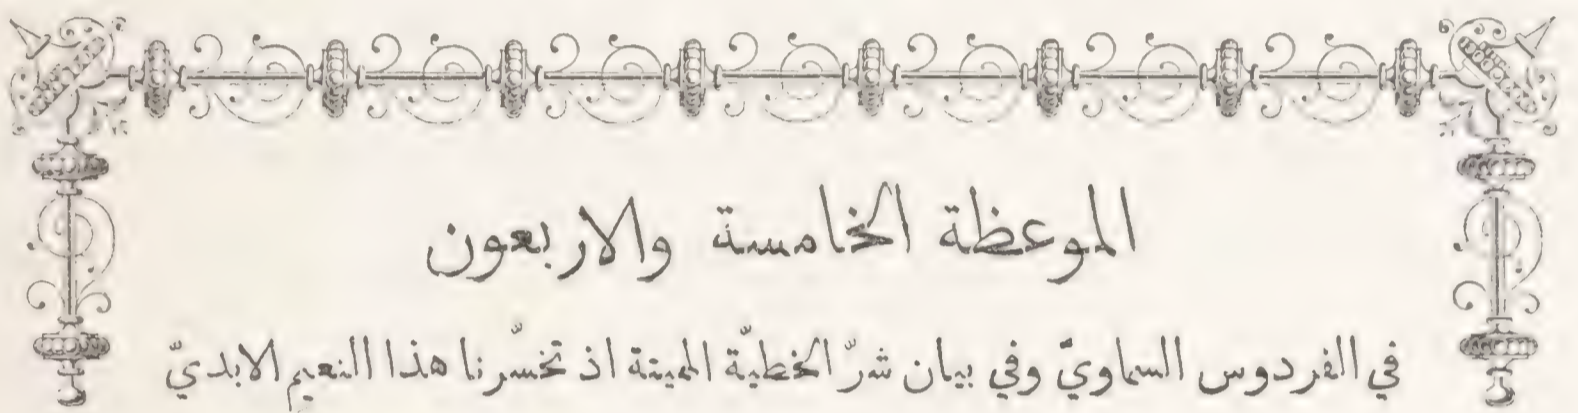 الموعظة الخامسة والاربعون
في الفردوس السماويّ وفي بيان شرّ الخطيّة المميتة اذ تخسّرنا هذا النعيم الابديّ